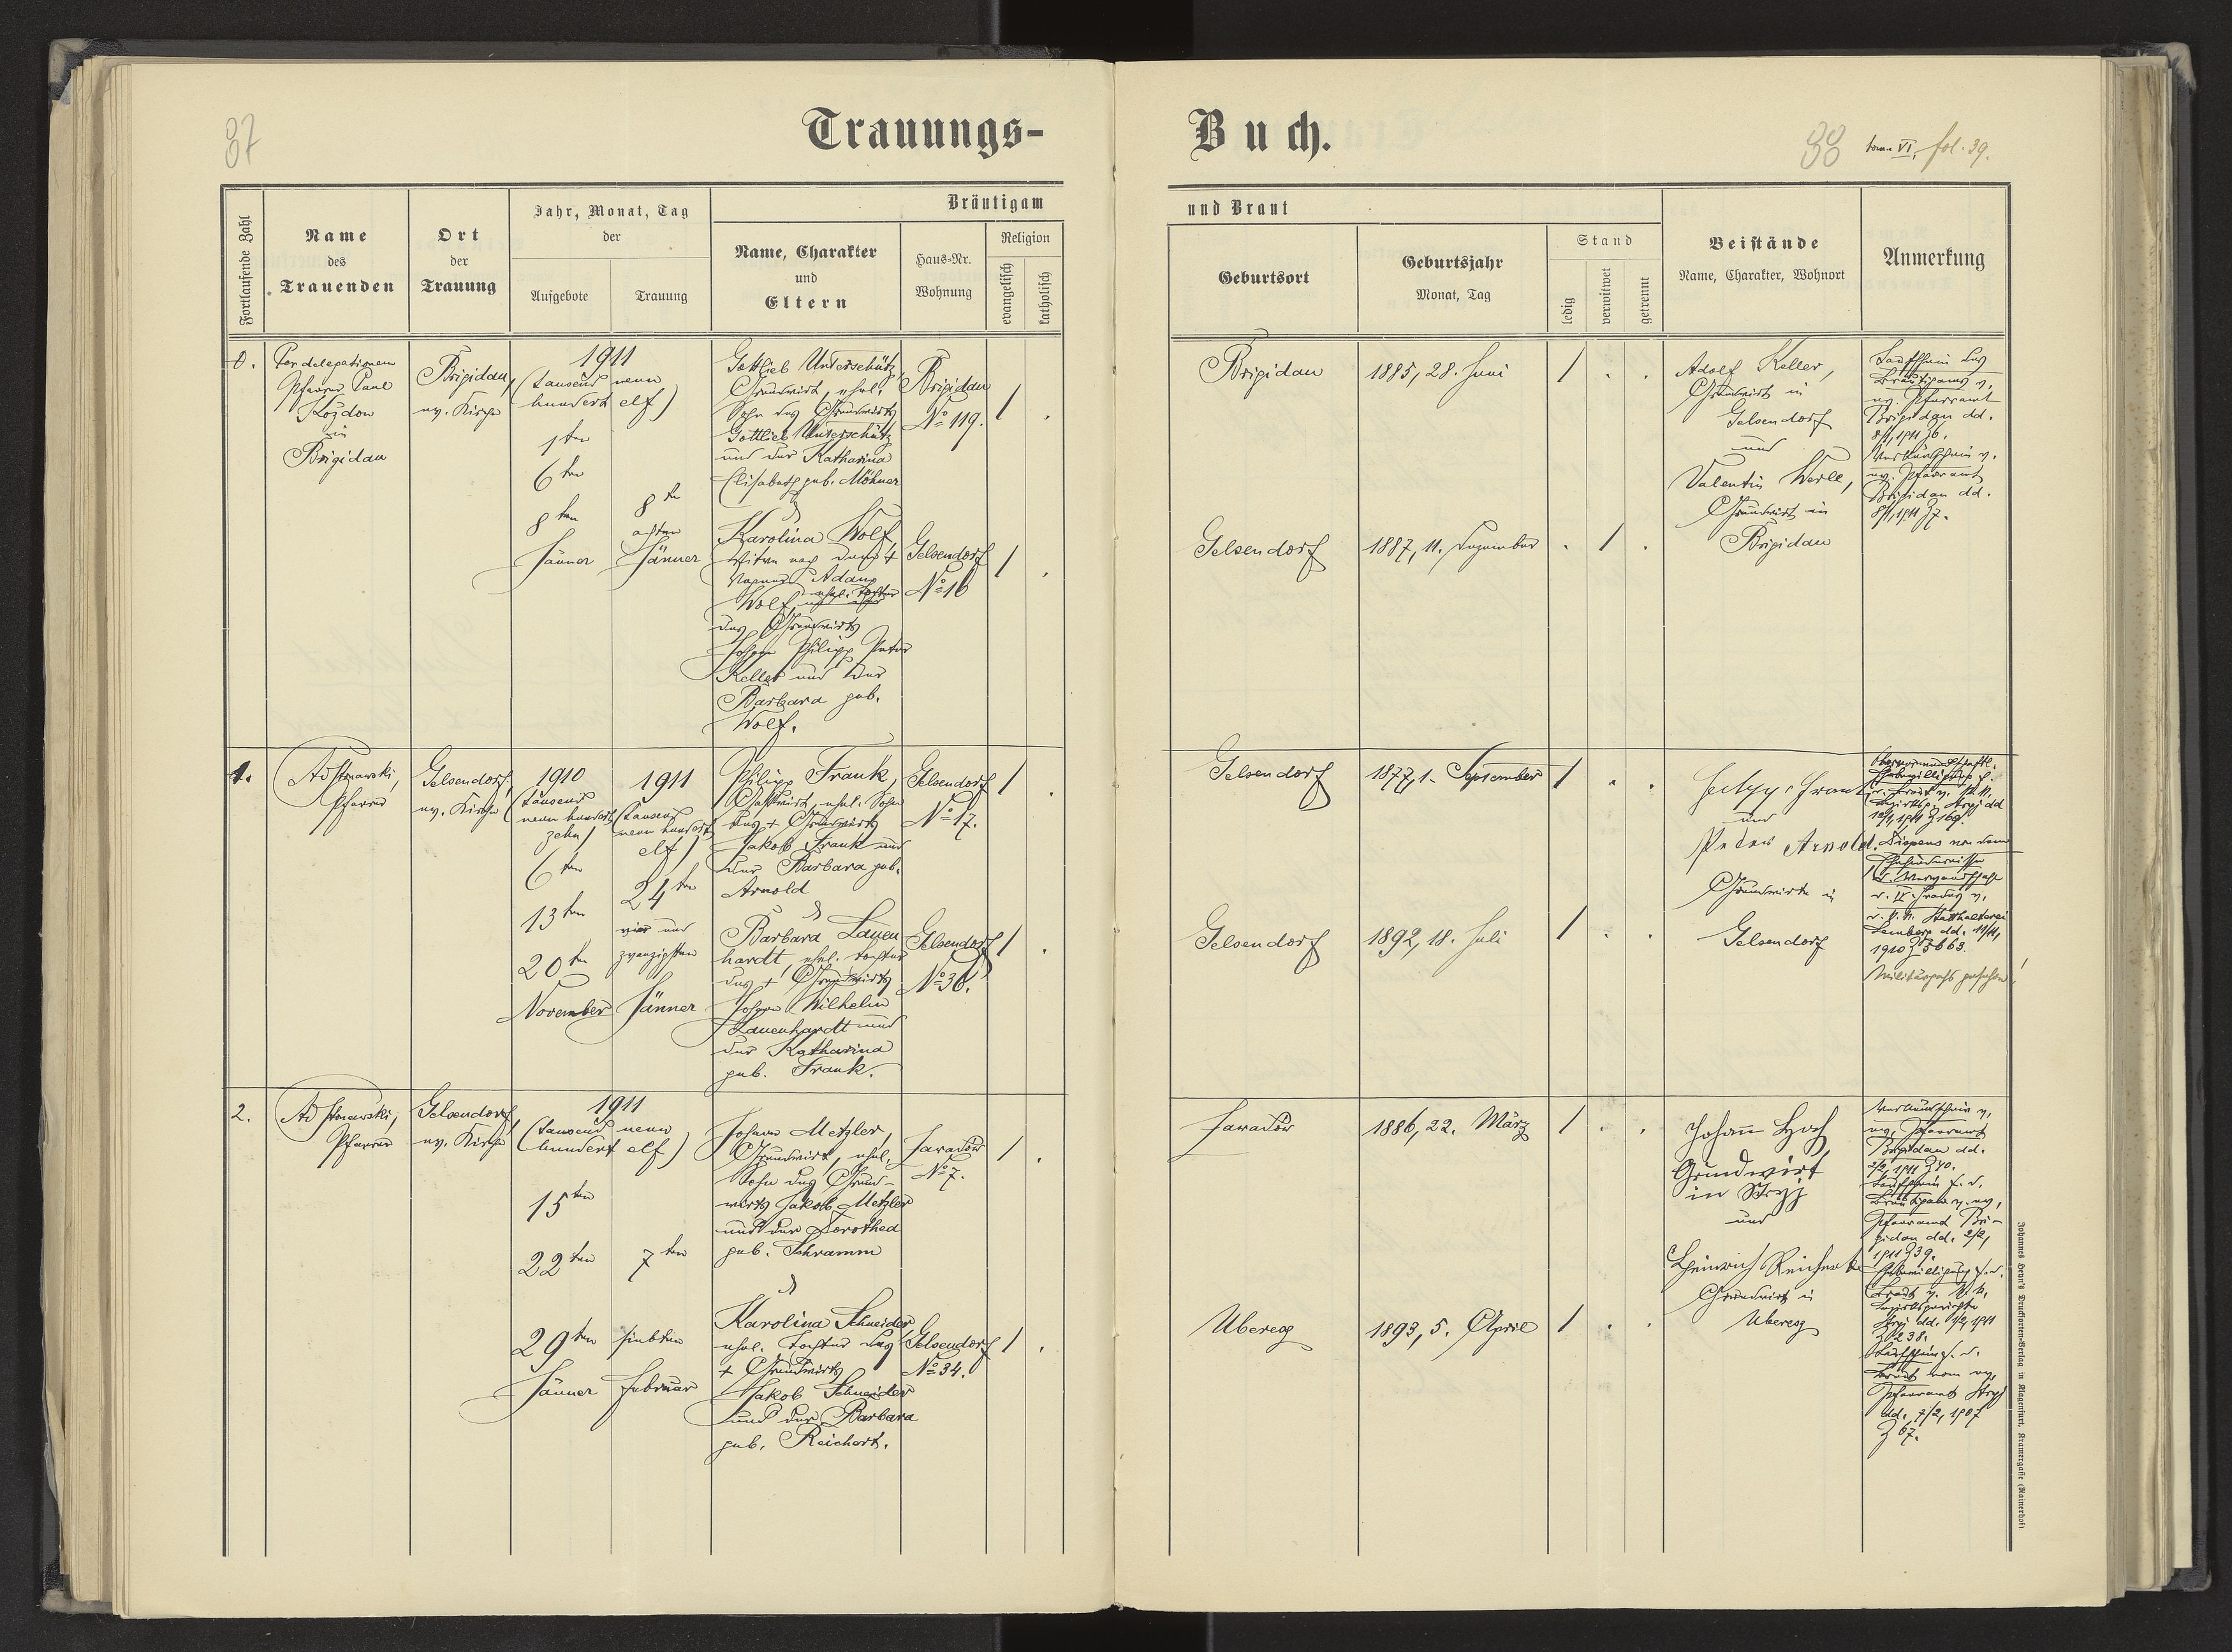 37
Trauungs-
Buch.
38 tom VI, fol. 39.
Fortlaufende Zahl
Name
des
Trauenden
Ort
der
Trauung
Jahr, Monat, Tag
der
Aufgebote
Trauung
Bräutigam
Name, Charakter
und
Eltern
Haus-Nr.
Wohnung
Religion
evangelisch
katholisch
und Braut
Geburtsort
Geburtsjahr
Monat, Tag
Stand
ledig
verwitwet
getrennt
Beistände
Name, Charakter, Wohnort
Anmerkung
0.
Per delegationem
Pfarrer Paul
Kozdon
in
Brigidau
Brigidau,
ev. Kirche
1911
(tausend neun
hundert elf)
1ten
6ten
8ten
Jänner
8te
achten
Jänner
Gottlieb Unterschütz,
Grundwirt, ehel.
Sohn des Grundwirts
Gottlieb Unterschütz
und der Katharina
Elisabeth geb. Möhner
&
Karolina Wolf,
Witwe nach dem +
Adam
Wolf, ehel. Tochter
des Grundwirts
Johann Philipp Peter
Keller und der
Barbara geb.
Wolf.
Brigidau
No 119.
/ .
Gelsendorf
No 16
/ .
Brigidau
1885, 28. Juni
/ . .
Gelsendorf
1887, 11. Dezember
. / .
Adolf Keller,
Grundwirt in
Gelsendorf
und
Valentin Werle,
Grundwirt in
Brigidau
Taufschein des
Bräutigams v.
ev. Pfarramt
Brigidau dd.
8/1, 1911 Z 6.
Verkündschein v.
ev. Pfarramt
Brigidau dd.
8/1, 1911 Z 7.
1.
Pfarrer
Gelsendorf,
ev. Kirche
1910
(tausend
neun hundert
zehn)
6ten
13ten
20ten
November
1911
(tausend
neun hundert
elf)
24ten
vier und
zwanzigsten
Jänner
Philipp Frank,
Gastwirt, ehel. Sohn
des + Grundwirts
Jakob Frank und
der Barbara geb.
Arnold
&
Barbara Lauen
hardt ehel. Tochter
des + Grundwirts
Johann Wilhelm
Lauenhardt und
der Katharina
geb. Frank.
Gelsendorf
No 17.
/ .
Gelsendorf
No 36.
/ .
Gelsendorf
1877, 1. September
/ . .
Gelsendorf
1892, 18. Juli
/ . .
Frank
und
Peter Arnold.
Grundwirte in
Gelsendorf
Obervormundschaftl.
Ehebewilligung f.
d. Braut v. k. k.
Bezirksg. Stryj dd
Z 169.
Dispens von dem
Ehehindernisse
d. Verwandschaft
v. d. k. k. Statthalterei
Lemberg dd. 11/11,
1910
Militärpaß gesehen!
2.
Pfarrer
Gelsendorf,
ev. Kirche
1911
(tausend neun
hundert elf)
15ten
22ten
29ten
Jänner
7ten
siebten
Februar
Johann Metzler,
Grundwirt, ehel.
Sohn des Grund-
wirts Jakob Metzler
und der Dorothea
geb. Schramm
&
Karolina Schneider
ehel. Tochter des
+ Grundwirts
Jakob Schneider
und der Barbara
geb. Reichert.
Jaradów
No 7.
/ .
Gelsendorf
No 34.
/ .
Jaradów
1886, 22. März
/ . .
Ubereg
1893, 5. April
/ . .
Johann Hoch
Grundwirt
in Stryj
und
Heinrich Reichert
Grundwirt in
Ubereg
Verkündschein v.
ev. Pfarramt
Brigidau dd.
2/2, 1911 Z 40.
Taufschein f. d.
Bräutigam v. ev.
Pfarramt Bri-
gidau dd. 2/2,
1911 Z 39.
Ehebewilligung f. d.
Braut v. k. k.
Bezirksgerichte
Stryj dd. 1/2, 1911
Z 238.
Taufschein f. d.
Braut vom ev.
Pfarramt Stryj
dd. 7/2, 1907
Z 67.
Johannes Heyn's Drucksorten-Verlag in Klagenfurt, Kramergasse (Rainerhof)